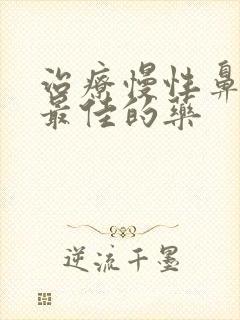 治療慢性鼻
最佳的藥
逆流千墨